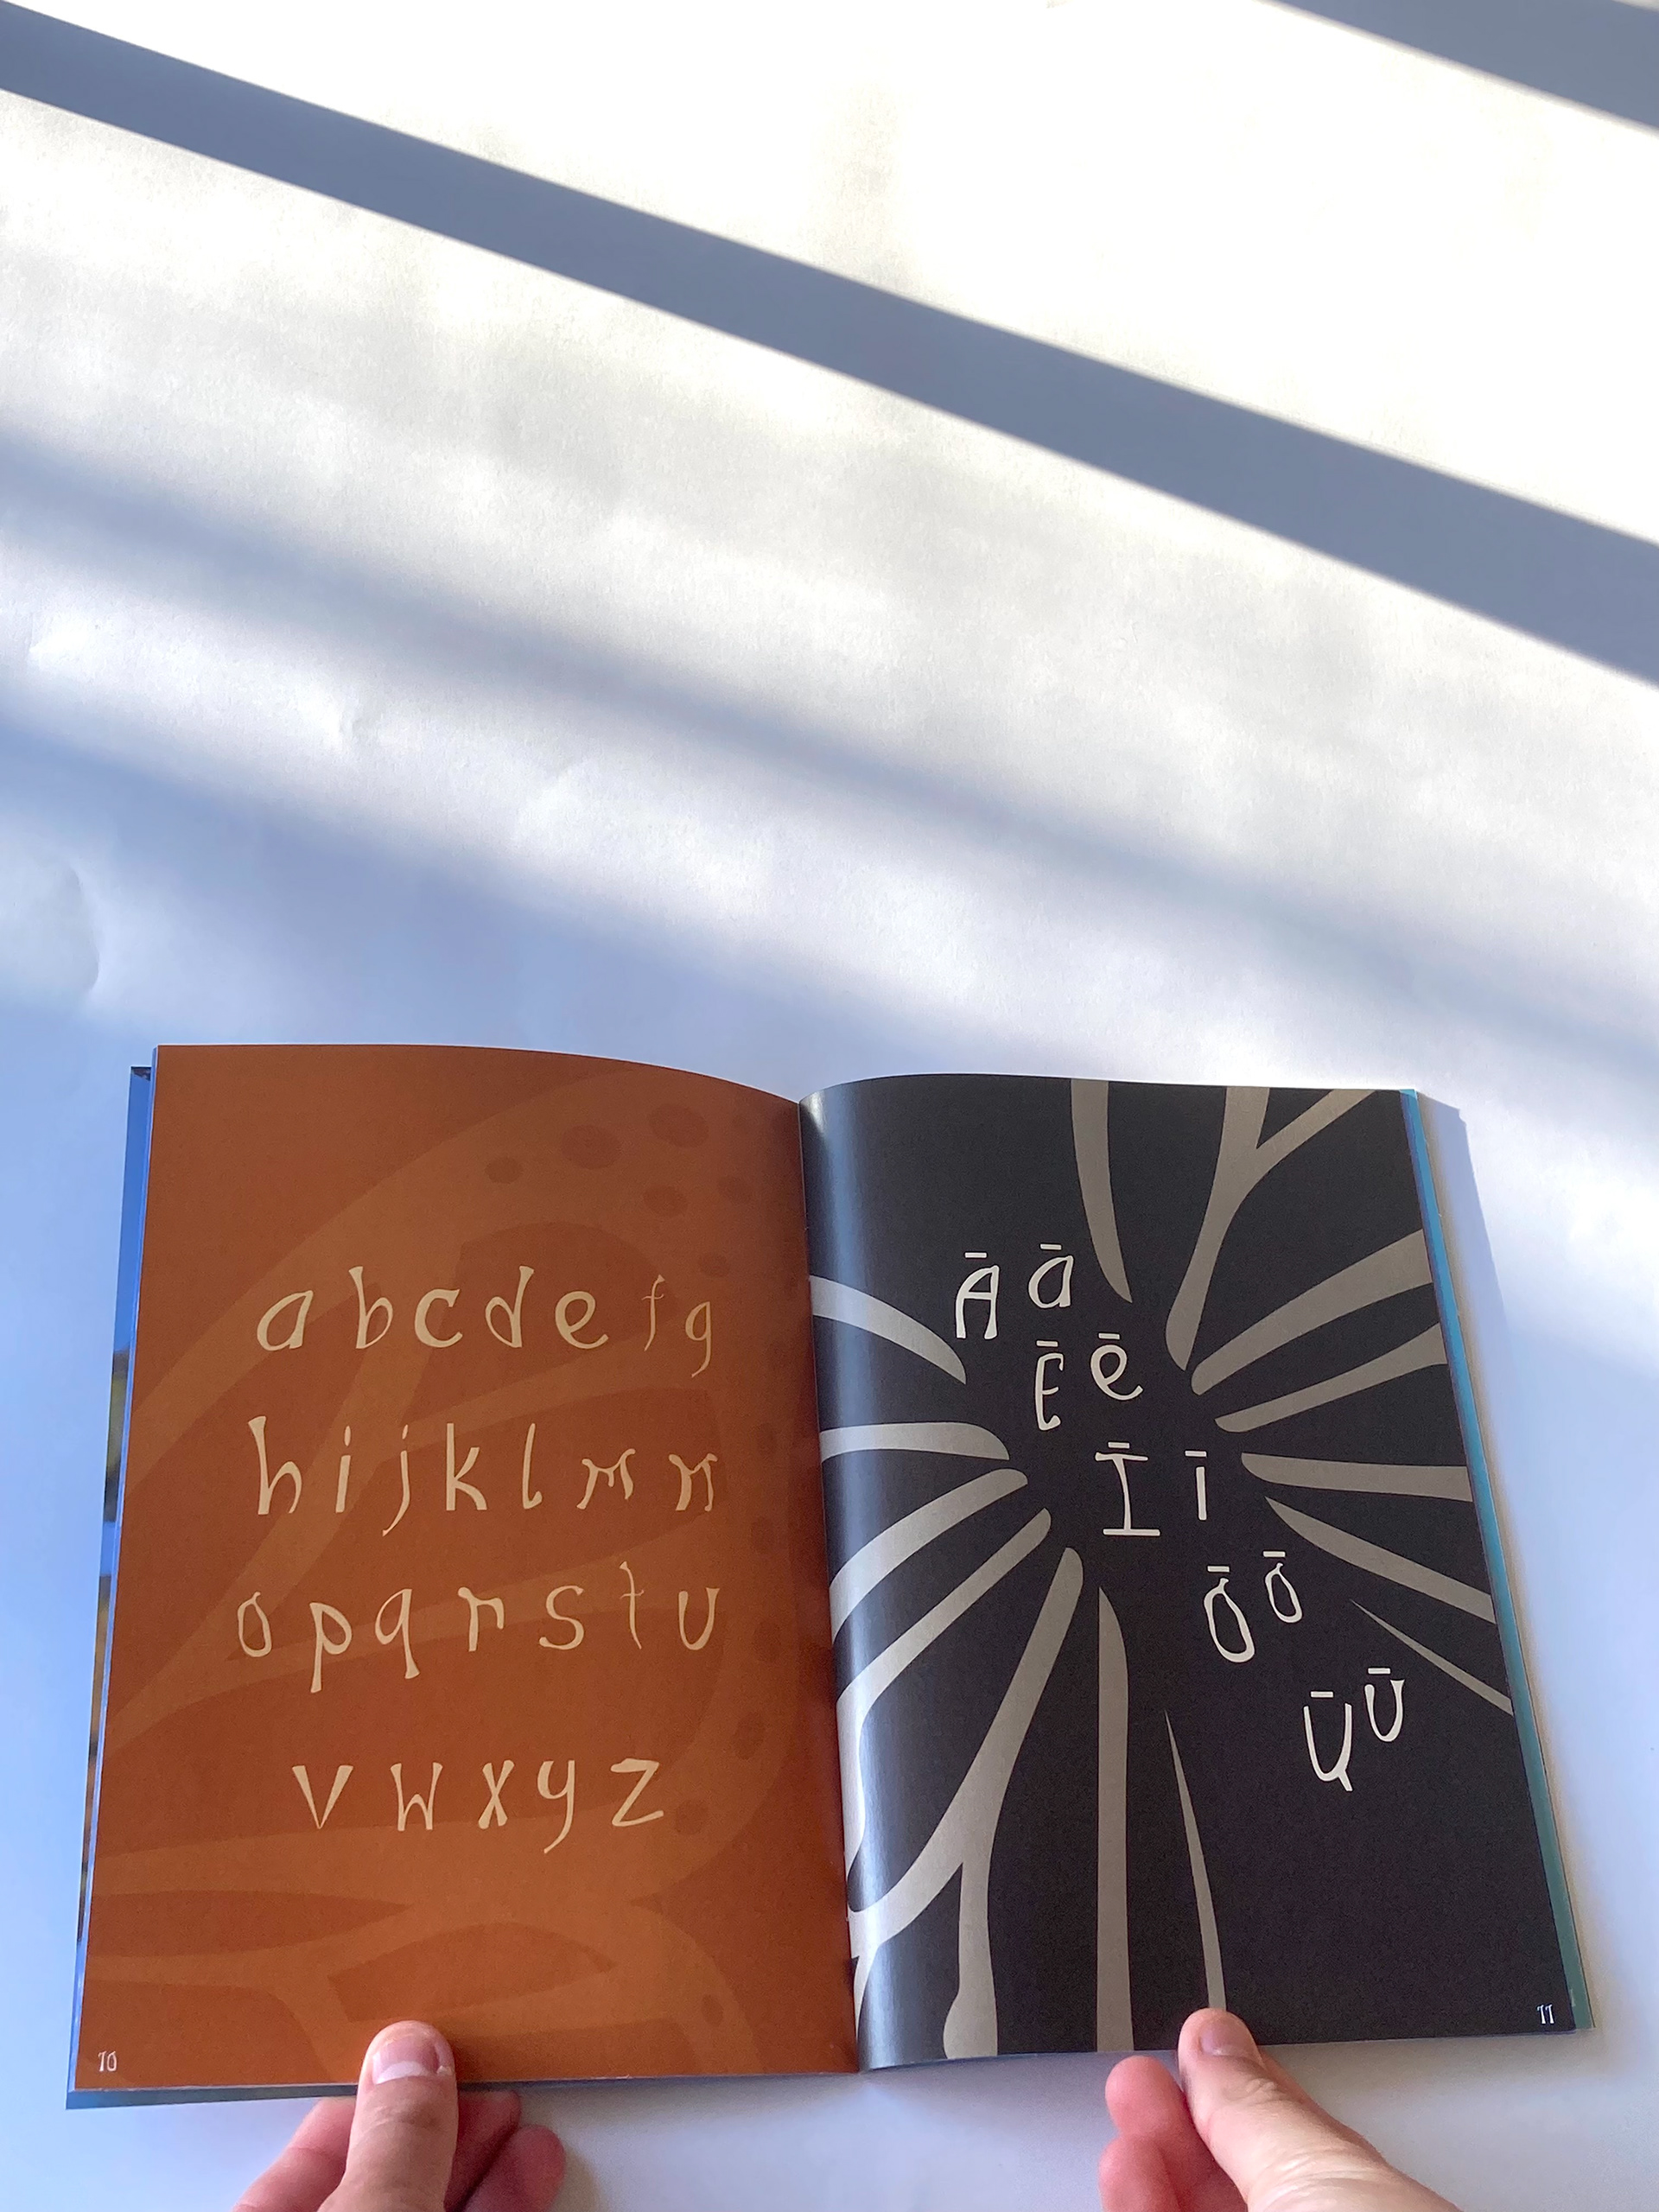 a b c d e f g
h i j k l m n
o p q r s t u
v w x y z
10
Ā ā
Ē ē
Ī ī
Ō ō
Ū ū
11